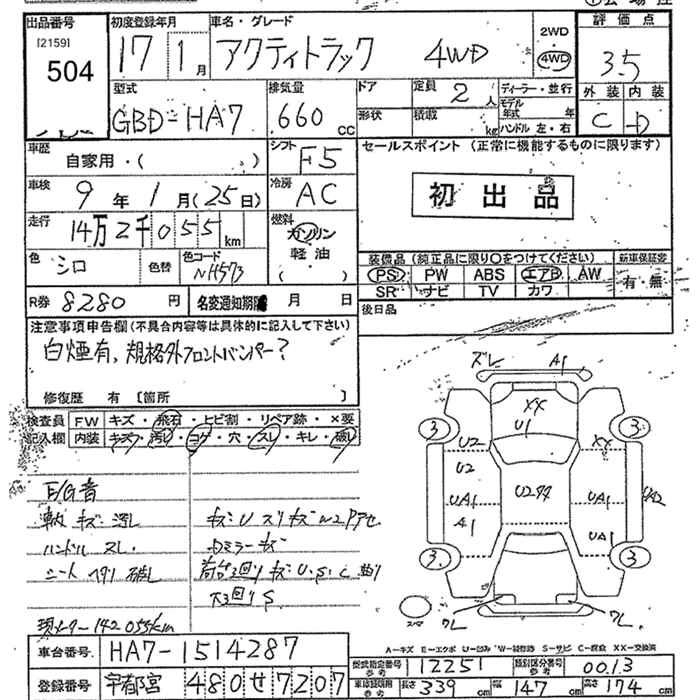 出品番号 初度登録年月 車名・グレード 評価点
[2159] 504
17 1月 アクティトラック 4WD
2WD
4WD
3.5
外装 内装
C D
型式 GBD-HA7 排気量 660 CC
ドア 定員 2人 ディーラー・並行
形状 積載 kg モデル年式 年
ハンドル 左・右
車歴 自家用・( )
シフト F5
セールスポイント(正常に機能するものに限ります)
初出品
車検 9年1月(25日)
冷房 AC
走行 14万2千055km
燃料 ガソリン 軽油 ( )
色 シロ 色替 色コード NH573
装備品(純正品に限り〇をつけてください) 新車保証書
PS PW ABS エアB AW 有・無
SR ナビ TV カワ
R券 8280円 名変通知期限 月 日
後日品
注意事項申告欄(不具合内容等は具体的に記入して下さい)
白煙有、規格外フロントバンパー?
修復歴 有 [箇所 ]
検査員記入欄
FW キズ・飛石・ヒビ割・リペア跡・×要
内装 キズ・汚レ・コゲ・穴・スレ・キレ・破レ
E/G音
ハンドルスレ
シート ヘタリ 破レ
現メーター142055km
キズ U スリキズ W2 Pアセ
ズレ A1
XX
U1
3 3
U2 XX
U2
UA1 U277 UA1 UA2
A1 UA1
3 3
スマ ワレ ワレ
A=キズ E=エクボ U=凹み W=補修跡 S=サビ C=腐食 XX=交換済
車台番号 HA7-1514287
登録番号 宇都宮 480せ7207
型式指定番号 参考 12251 類別区分番号 参考 0013
車検証記録 参考 長さ 339cm 幅 147cm 高さ 174cm